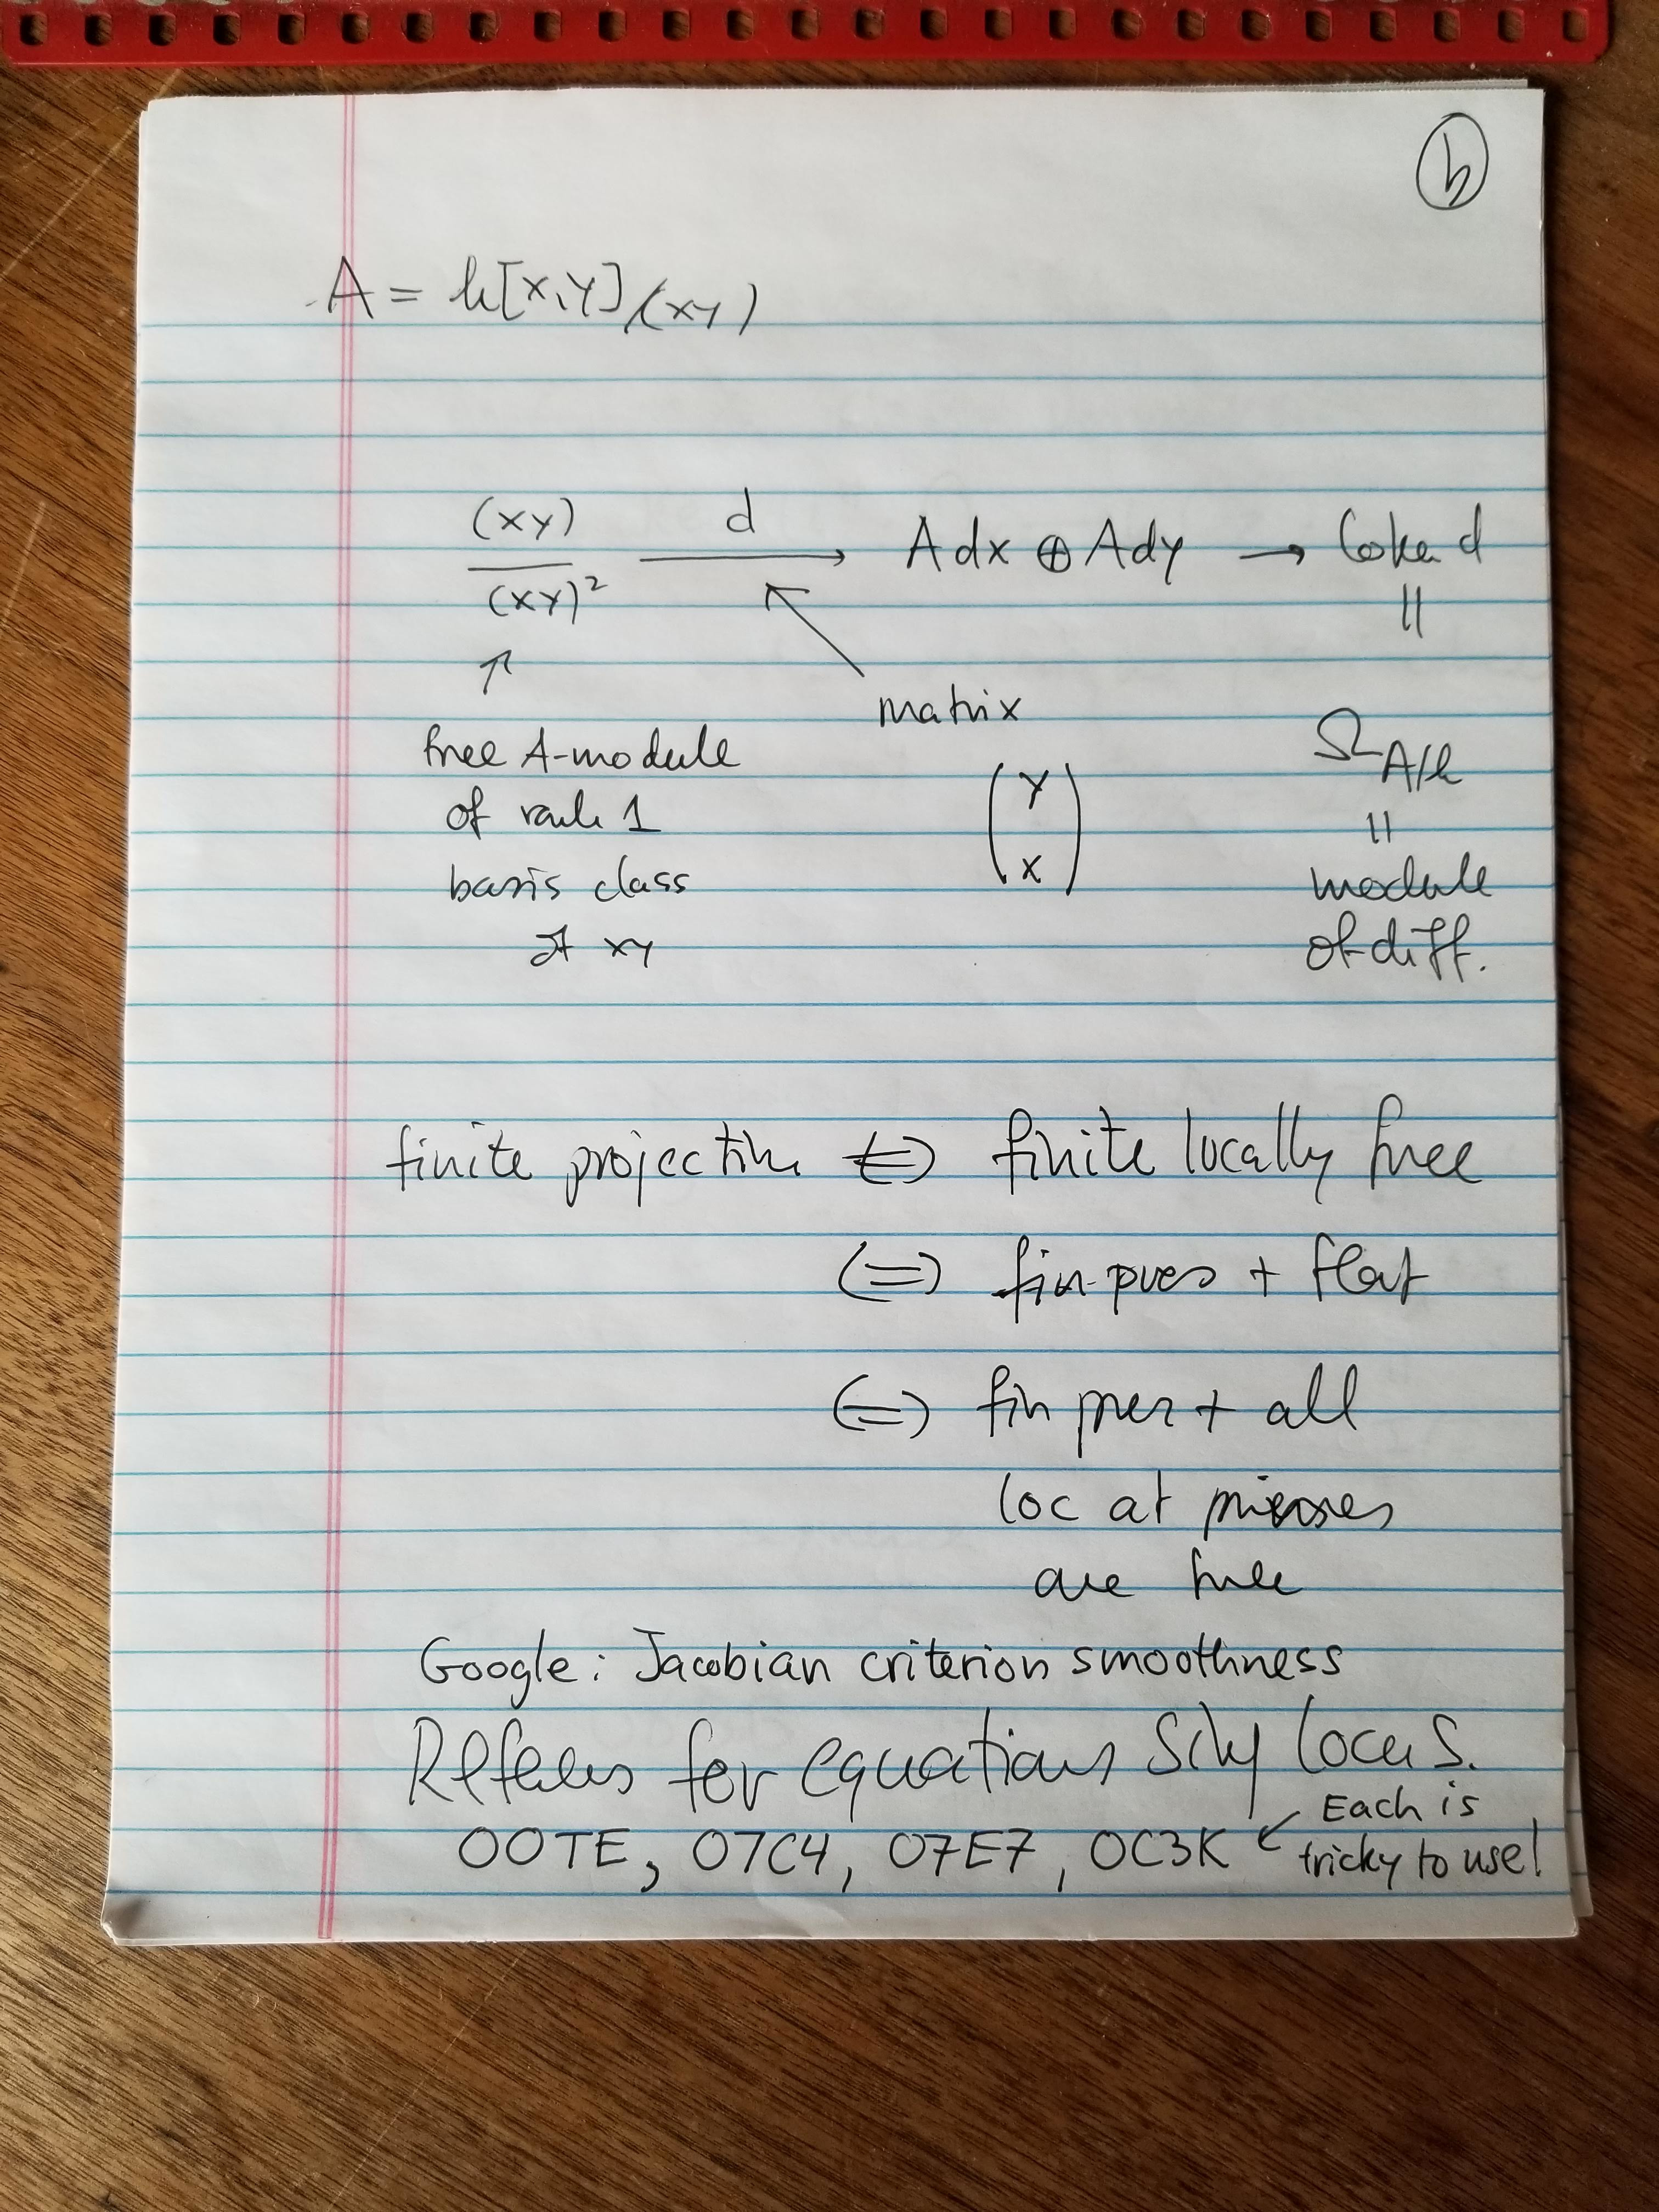 b
A = k[x,y]/(xy)
(xy)/(xy)² —d→ Adx ⊕ Ady → Coker d
↑ ↖ ||
matrix
free A-module Ω_{A/k}
of rank 1 (y x) ||
basis class module
of xy of diff.
finite projective ⇔ finite locally free
⇔ fin. pres + flat
⇔ fin pres + all
loc at primes
are free
Google: Jacobian criterion smoothness
for equations locus.
00TE, 07C4, 07E7, 0C3K ← Each is
tricky to use!